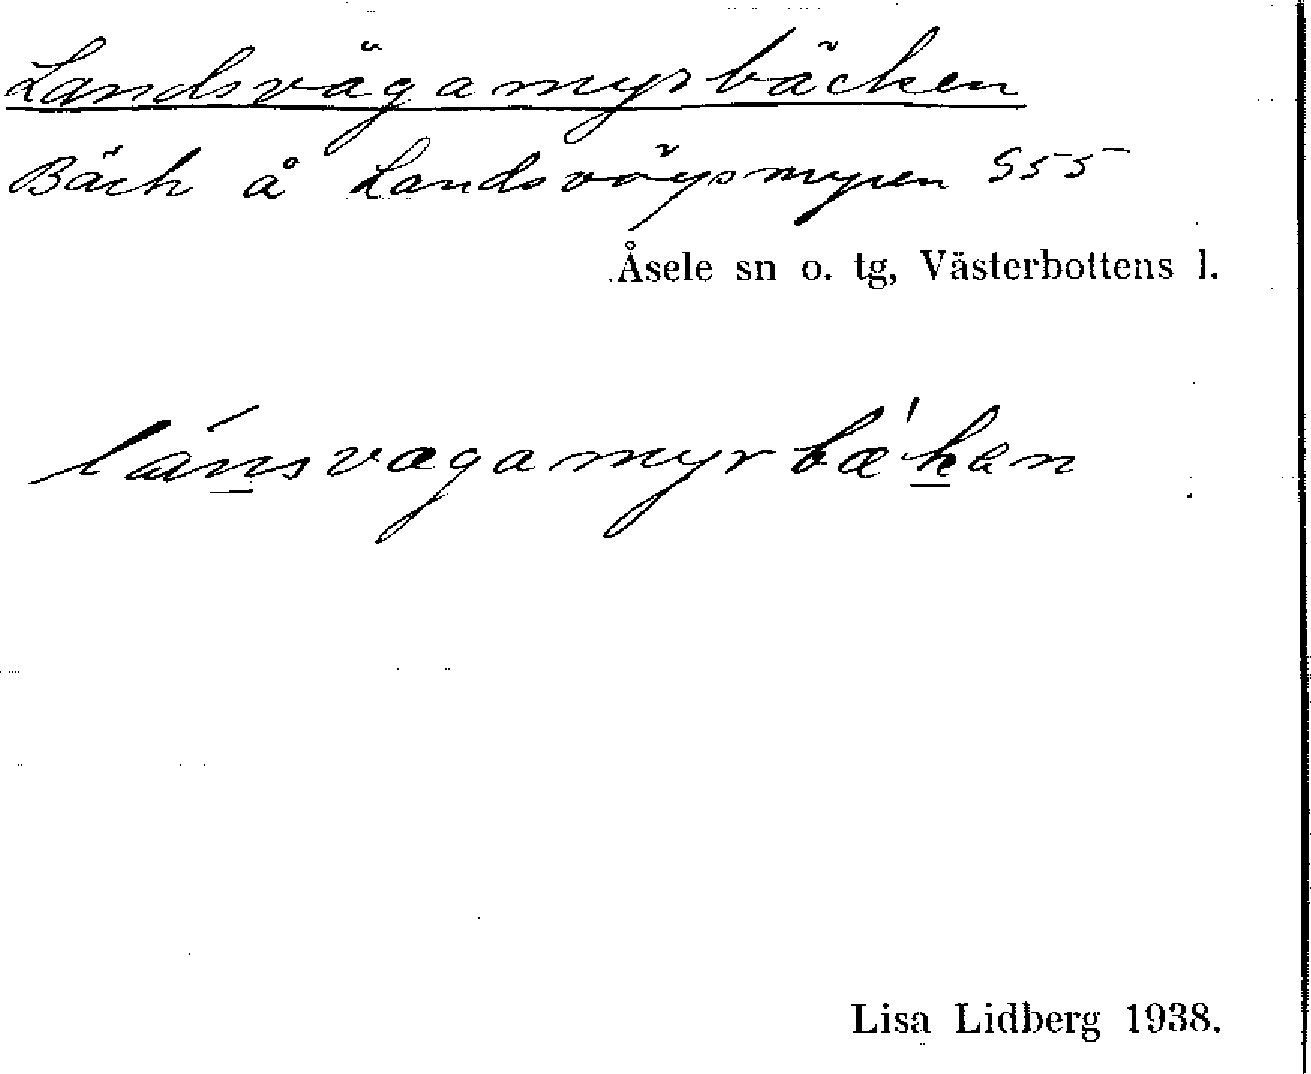 Landsvägamyrbäcken
Bäck å Landsvägsmyren S55
Åsele sn o. tg, Västerbottens l.
lánsvægamyrbæ'ken
Lisa Lidberg 1938.